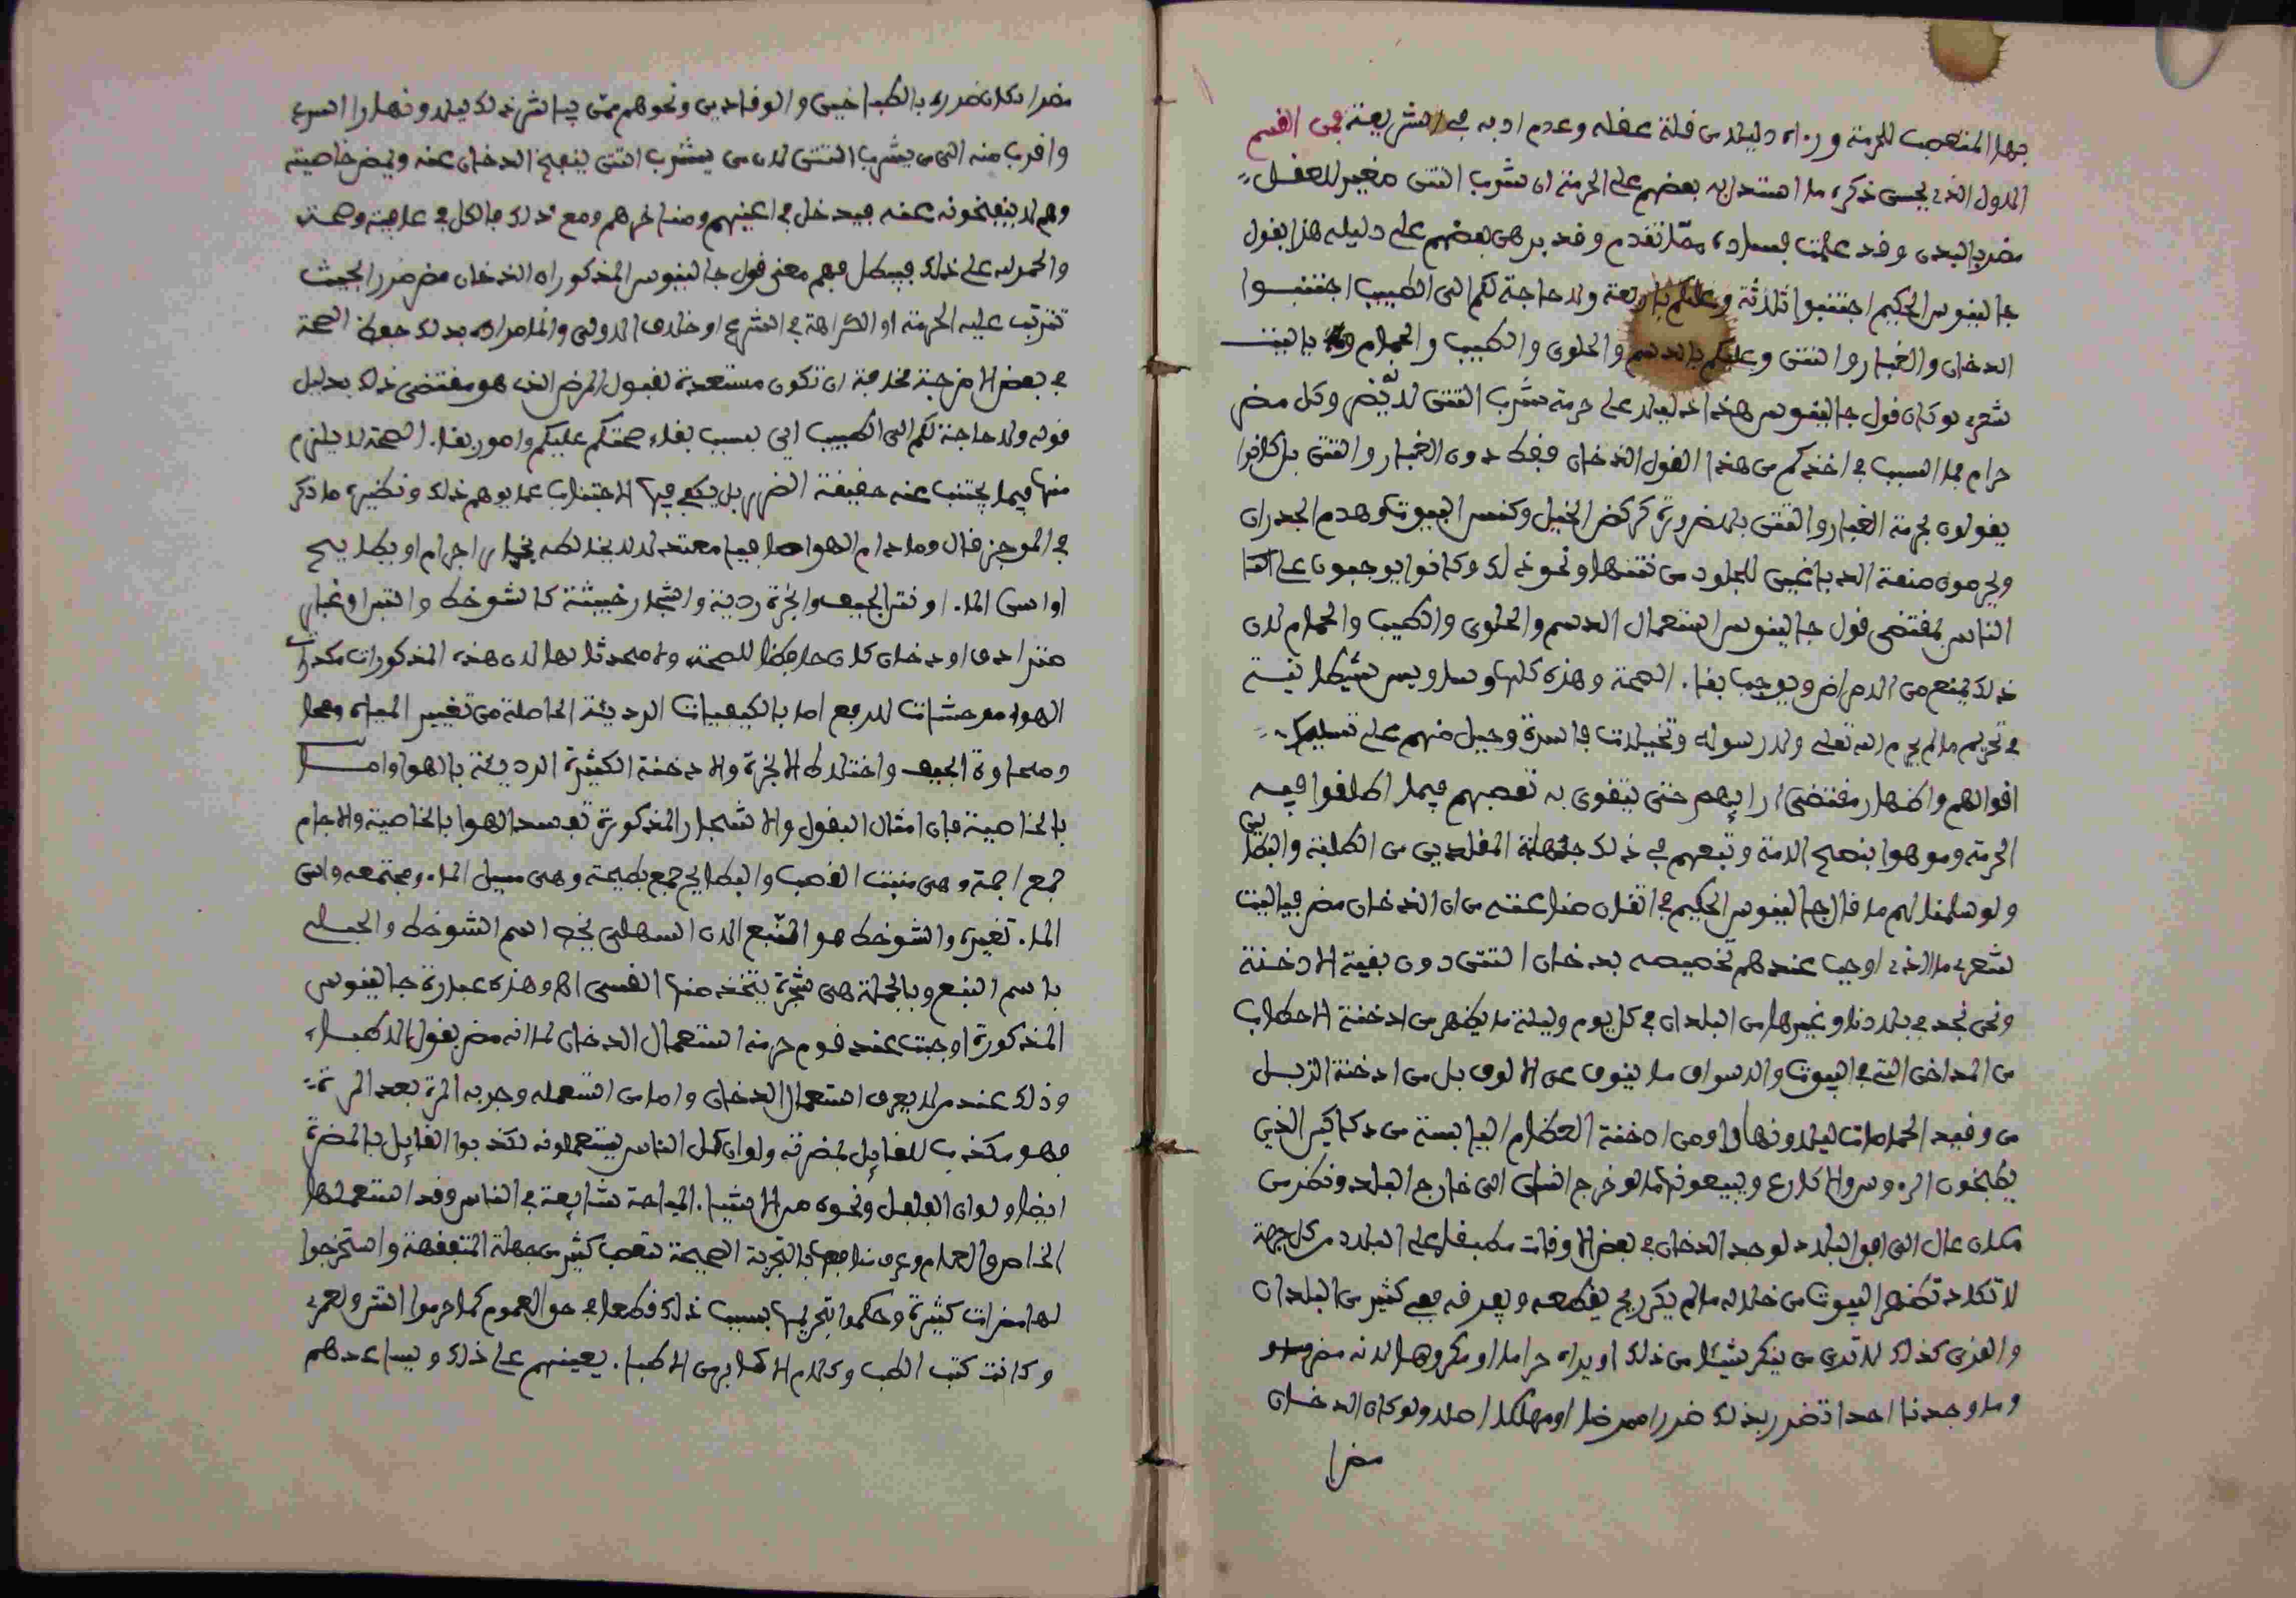 بها المتعصب للحرمة ورءاه دليلا من قلة عقله وعدم ادبه في الشريعة فمن القسم
الاول الذي يحسن ذكره ما استدل به بعضهم على الحرمة ان شرب التتن مغير للعقل
مضر بالبدن وقد علمت فساده مما تقدم وقد برهن بعضهم على دليله هذا بقول
جالينوس الحكيم اجتنبوا ثلاثة وعليكم باربعة ولا حاجة لكم الى الطبيب اجتنبوا
الدخان والغبار والنتن وعليكم بالدسم والحلوى والطيب والحمام يا ليت
شعري لو كان قول جالينوس هذا دليلا على حرمة شرب التتن لانه مضر وكل مضر
حرام فما السبب في اخذكم من هذا القول الدخان فقط دون الغبار والنتن بل كانوا
يقولون بحرمة الغبار والنتن بالضرورة كركض الخيل وكنس البيوت وهدم الجدران
ويحرمون صنعة الدباغين للجلود من نتنها ونحو ذلك وكانوا يوجبون على
الناس بمقتضى قول جالينوس استعمال الدسم والحلوى والطيب والحمام لان
ذلك يمنع من الامراض ويوجب بقاء الصحة وهذه كلها وساويس شيطانية
في تحريم ما لم يحرم الله تعلى ولا رسوله وتخيلات فاسدة وحيل منهم على تسليم
اقوالهم واظهار مقتضى ارايهم حتى يتقوى به تعصبهم فيما اطلقوا فيه
الحرمة وموهوا بنصح الامة وتبعهم في ذلك جهلة المقلدين من الطلبة والبطالين
ولو سلمنا لهم ما قال جالينوس الحكيم في اتقان صناعته من ان الدخان مضر فيا ليت
شعري ما الذي اوجب عندهم تخصيصه بدخان التتن دون بقية الادخنة
ونحن نجد في بلادنا وغيرها من البلدان في كل يوم وليلة ما يظهر من ادخنة الاحطاب
من المداخن التي في البيوت والاسواق ما ينوف عن الالوف بل من ادخنة الزبل
من وقيد الحمامات ليلا ونهارا ومن ادخنة العظام اليابسة من دكاكين الذين
يطبخون الروس والاكارع ويبيعونها فلو خرج انسان الى خارج البلد ونظر من
مكان عال الى افق البلد لوجد الدخان في بعض الاوقات مطبقا على البلاد من كل جهة
لا تكاد تظهر البيوت من خلاله ما لم يكن ريح يقطعه ويفرقه ففي كثير من البلدان
والقرى كذلك لا ترى من ينكر شيئا من ذلك او يراه حراما او مكروها لانه مضر
وما وجدنا احدا تضرر بذلك ضررا ممرضا او مهلكا اصلا ولو كان الدخان
مضرا
مضرا لكان ضرره بالطباخين والوقادين ونحوهم ممن يباشر ذلك ليلا ونهارا اسرع
واقرب منه الى من يشرب التتن لان من يشرب التتن ينفخ الدخان عنه ويمض خاصيته
وهم لا ينفخونه عنه فيدخل في اعينهم ومناخرهم ومع ذلك فالكل في عافية وصحة
والحمد لله على ذلك فيبطل فهم معنى قول جالينوس المذكور ان الدخان مضر ضررا بحيث
تترتب عليه الحرمة او الكراهة في الشرع او خلاف الاولى وانما مراده بذلك حفظ الصحة
في بعض الامزجة مخافة ان تكون مستعدة لقبول المرض الذي هو مقتضى ذلك بدليل
قوله ولا حاجة لكم الى الطبيب اي بسبب بقاء صحتكم عليكم وامور بقاء الصحة لا يلزم
منها فيما يجتنب عنه حقيقة الضرر بل يكفي فيها الاجتناب عما يوهم ذلك ونظيره ما ذكر
في الموجز قال وما دام الهوا صافيا معتدلا لا يخالطه بخار اجام او بطايح
او اسن الماء او نتن الجيف وابخرة ردية واشجار خبيثة كالشوخط والتين او غبار
مترادف او دخان كان حافظا للصحة ومحدثا لها لان هذه المذكورات مكدرات
الهواء موحشات للروح اما بالكيفيات الرديئة الحاصلة من تغيير المياه
ومجاوة الجيف واختلاط الابخرة والادخنة الكثيرة الرديئة بالهوا واما
بالخاصية فان امثال البقول والاشجار المذكورة تفسد الهوا بالخاصية والاجام
جمع اجمة وهي منبت القصب والبطايح جمع بطيحة وهي مسيل الماء ومجتمعه واسن
الماء تغيره والشوخط هو النبع لان السهلي يخص باسم الشوخط والجبلي
باسم النبع وبالجملة هي شجرة يتخذ منها القسي اه وهذه عبارة جالينوس
المذكورة اوجبت عند قوم حرمة استعمال الدخان لما انه مضر بقول الاطباء
وذلك عند من لا يعرف استعمال الدخان واما من استعمله وجربه المرة بعد المرة
فهو مكذب للقايل بمضرته ولو ان كل الناس يستعملونه لكذبوا القايل بالمضرة
ايضا ولو ان الفلفل ونحوه من الاشياء المباحة شايعة في الناس وقد استعملها
الخاص والعام وعرف منافعها بالتجربة الصحيحة تعصب كثير من جهلة المتفقهة واستخرجوا
لها مضرات كثيرة وحكموا بتحريمها بسبب ذلك قطعا في حق العموم كما حرموا التتن ولعمري
وكانت كتب الطب وكلام الاكابر من الاطباء يعينهم على ذلك ويساعدهم